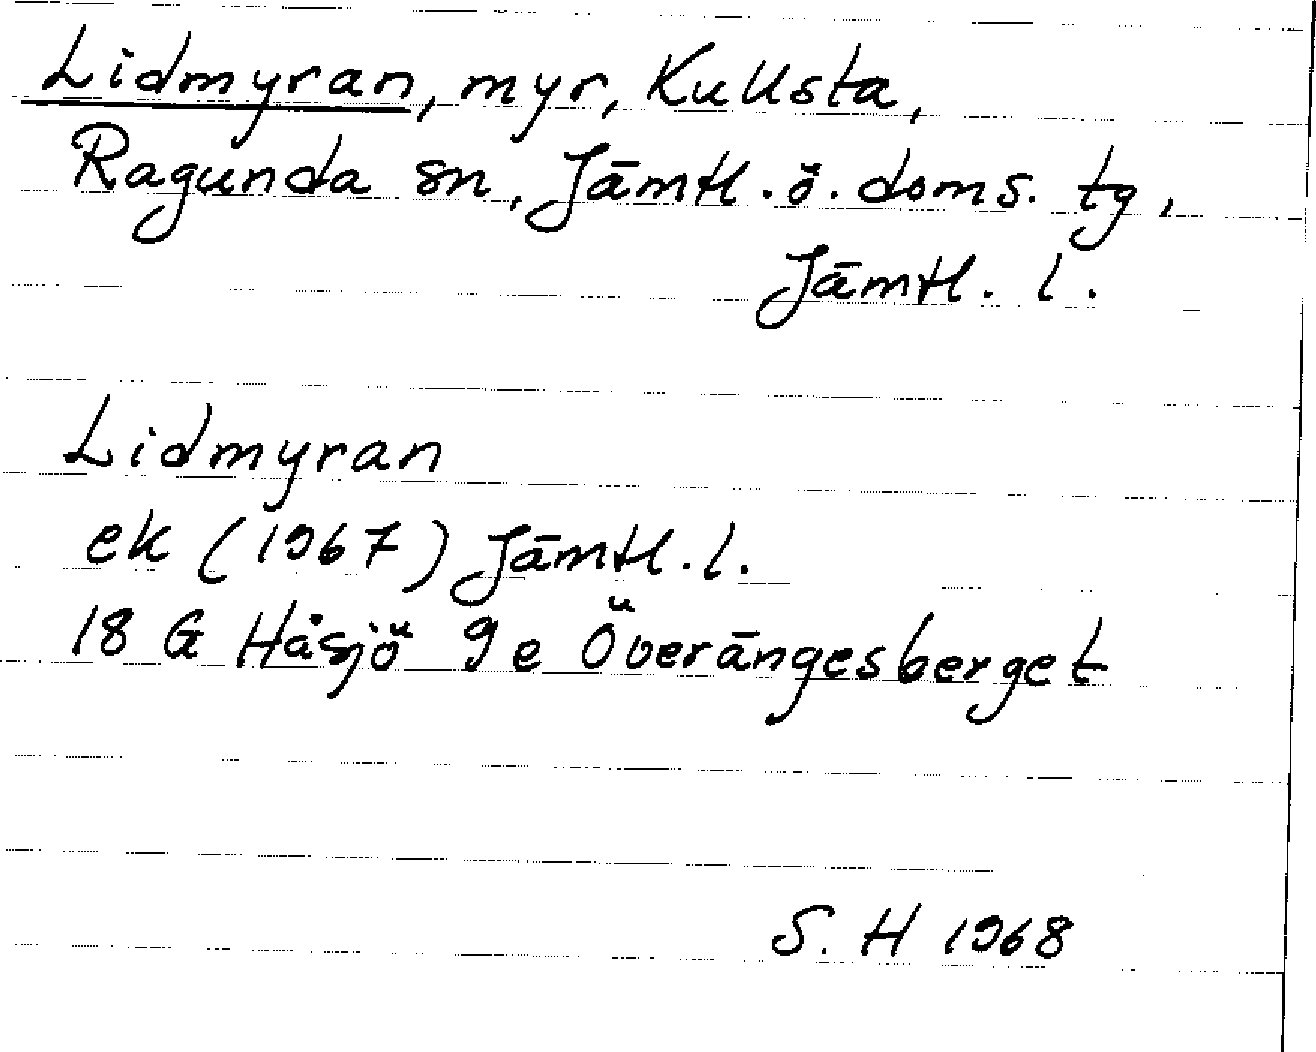 Lidmyran, myr, Kullsta,
Ragunda sn, Jämtl. ö. doms. tg,
Jämtl. l.
Lidmyran
ek (1967) Jämtl. l.
18 G Håsjö 9 e Överängesberget
S. H 1968